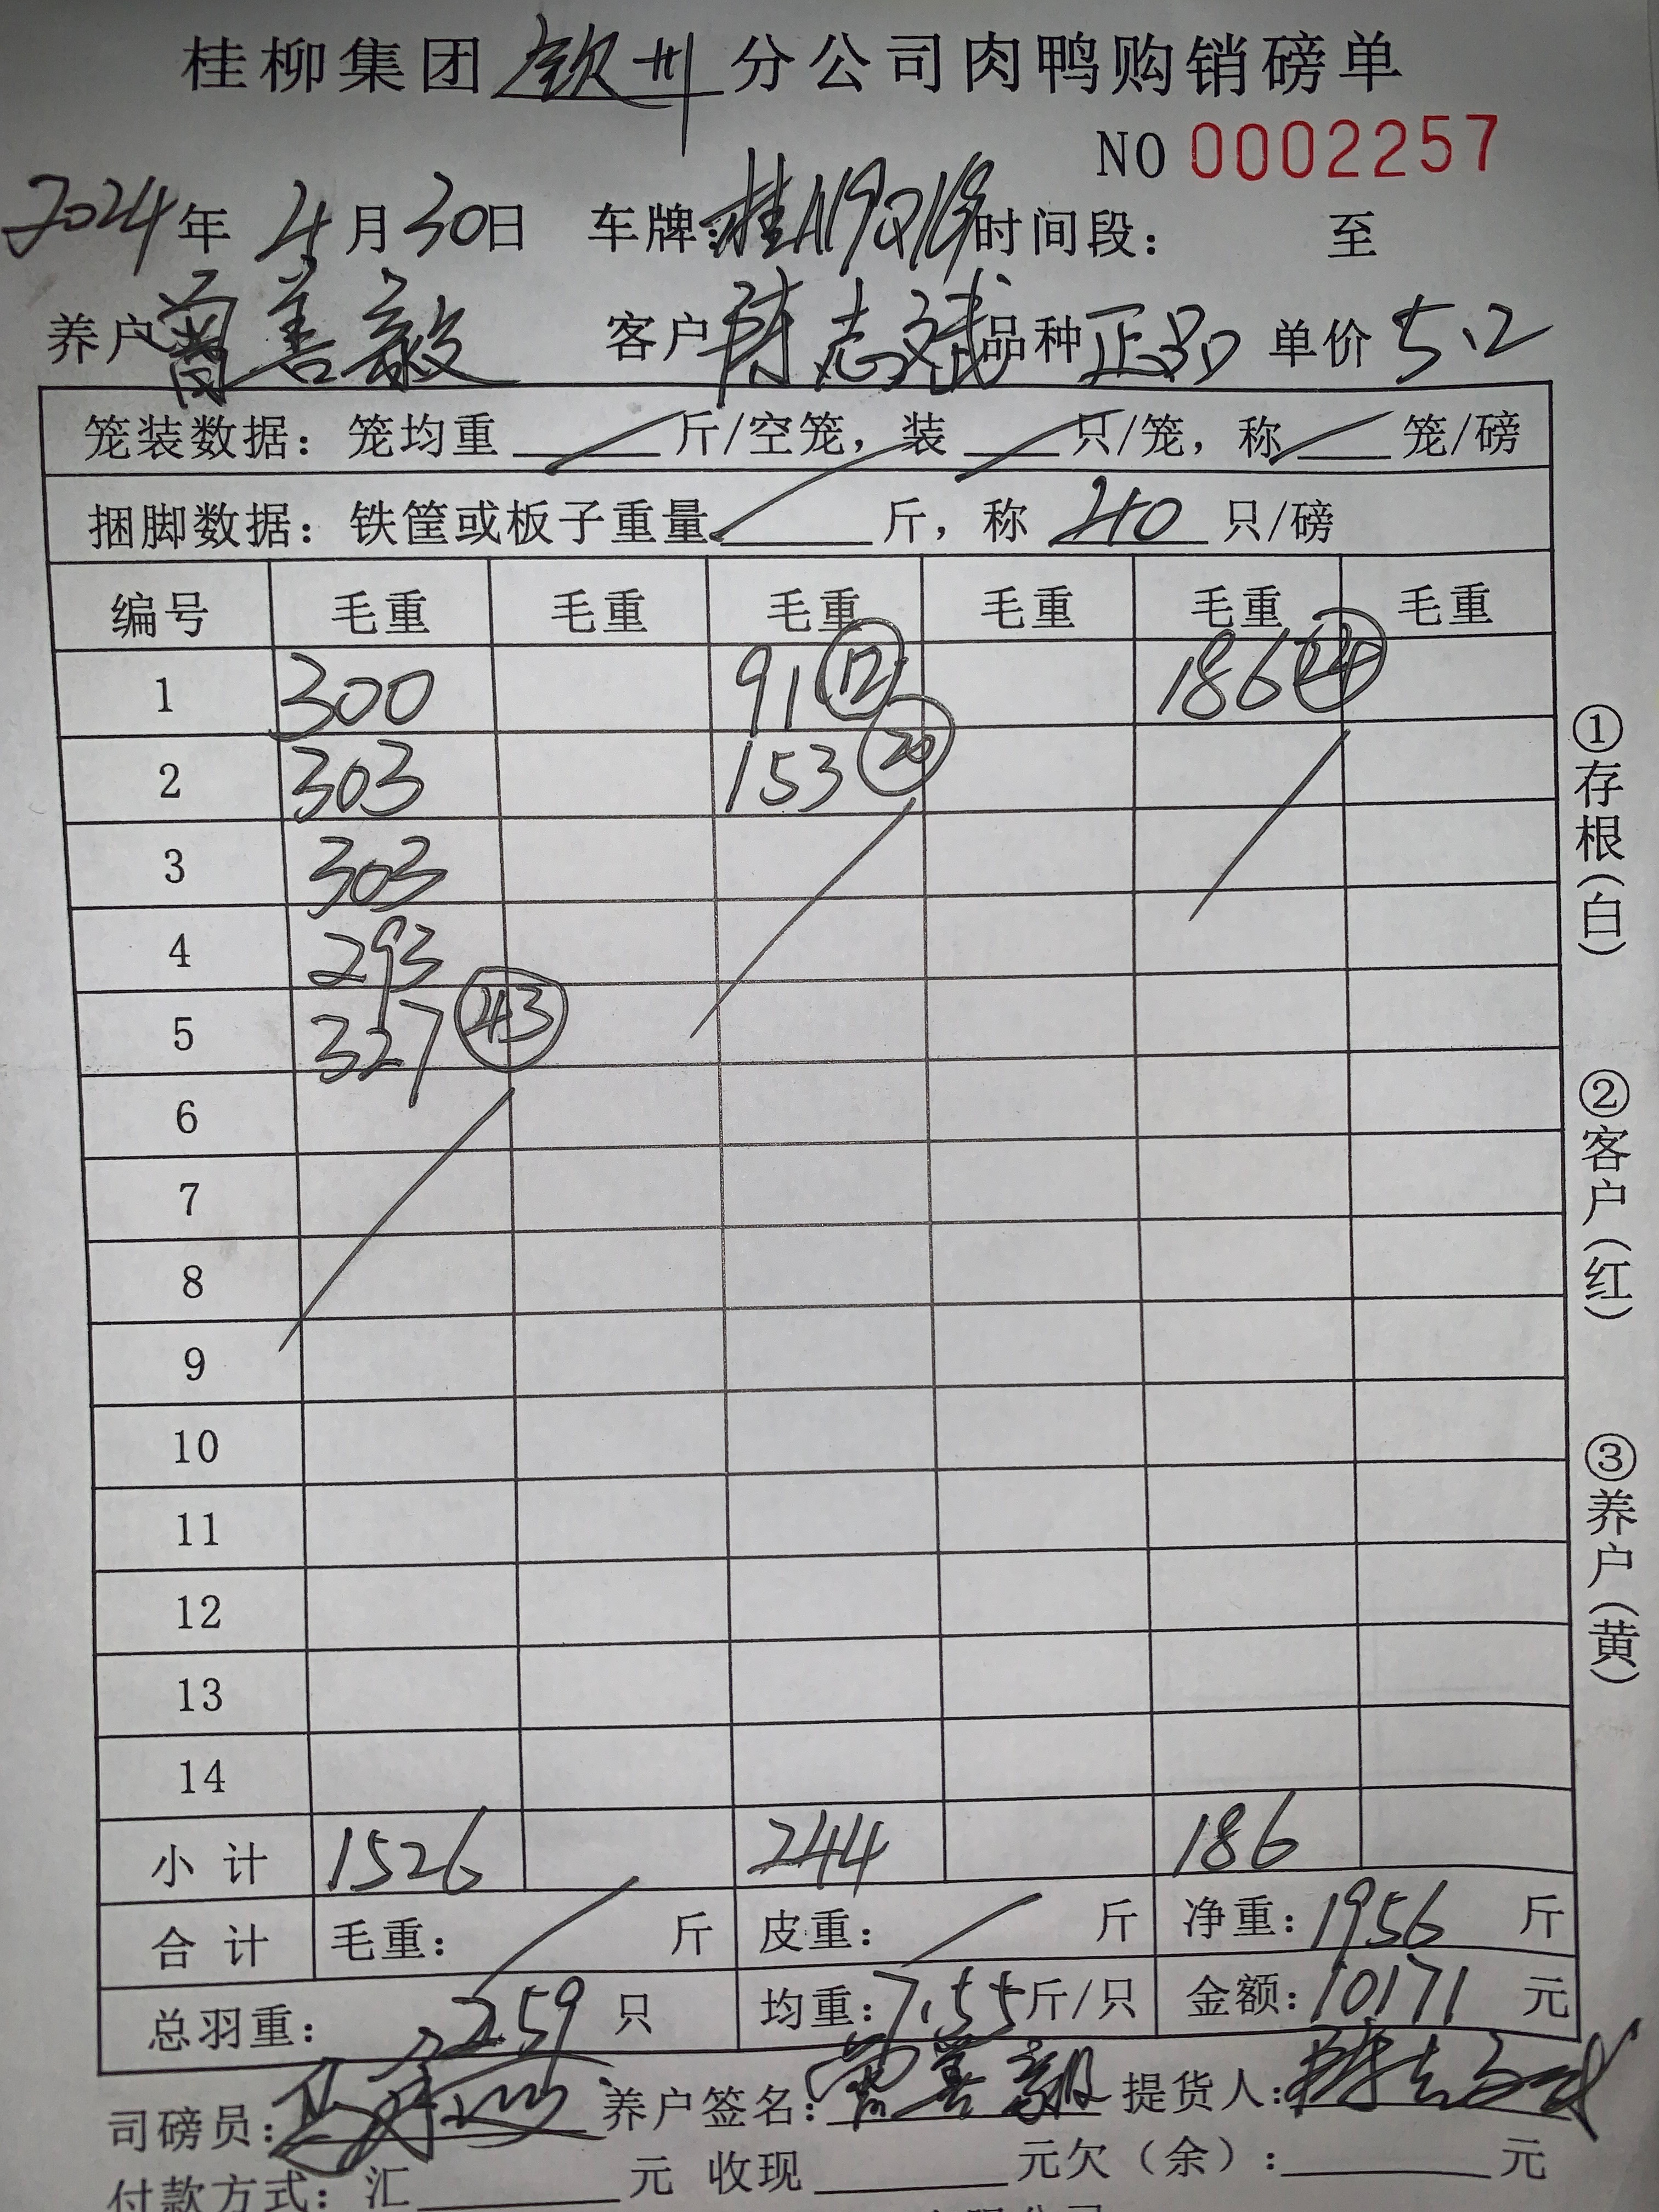 桂柳集团钦州分公司肉鸭购销磅单
NO 0002257
2024年4月30日 车牌:桂 时间段: 至
养户 善毅 客户 陈志斌 品种 正品 单价 5.2
笼装数据:笼均重 斤/空笼,装 只/笼,称 笼/磅
捆脚数据:铁筐或板子重量 斤,称 40 只/磅
编号 毛重 毛重 毛重 毛重 毛重 毛重
1 300 91 12 186 24
2 303 153 20
3 303
4 293
5 327 43
6
7
8
9
10
11
12
13
14
小计 1526 244 186
合计 毛重: 斤 皮重: 斤 净重:1956 斤
总羽重: 259 只 均重:7.55斤/只 金额:10171 元
司磅员: 养户签名: 善毅 提货人:陈志斌
付款方式:汇 元 收现 元欠(余): 元
①存根(白)
②客户(红)
③养户(黄)